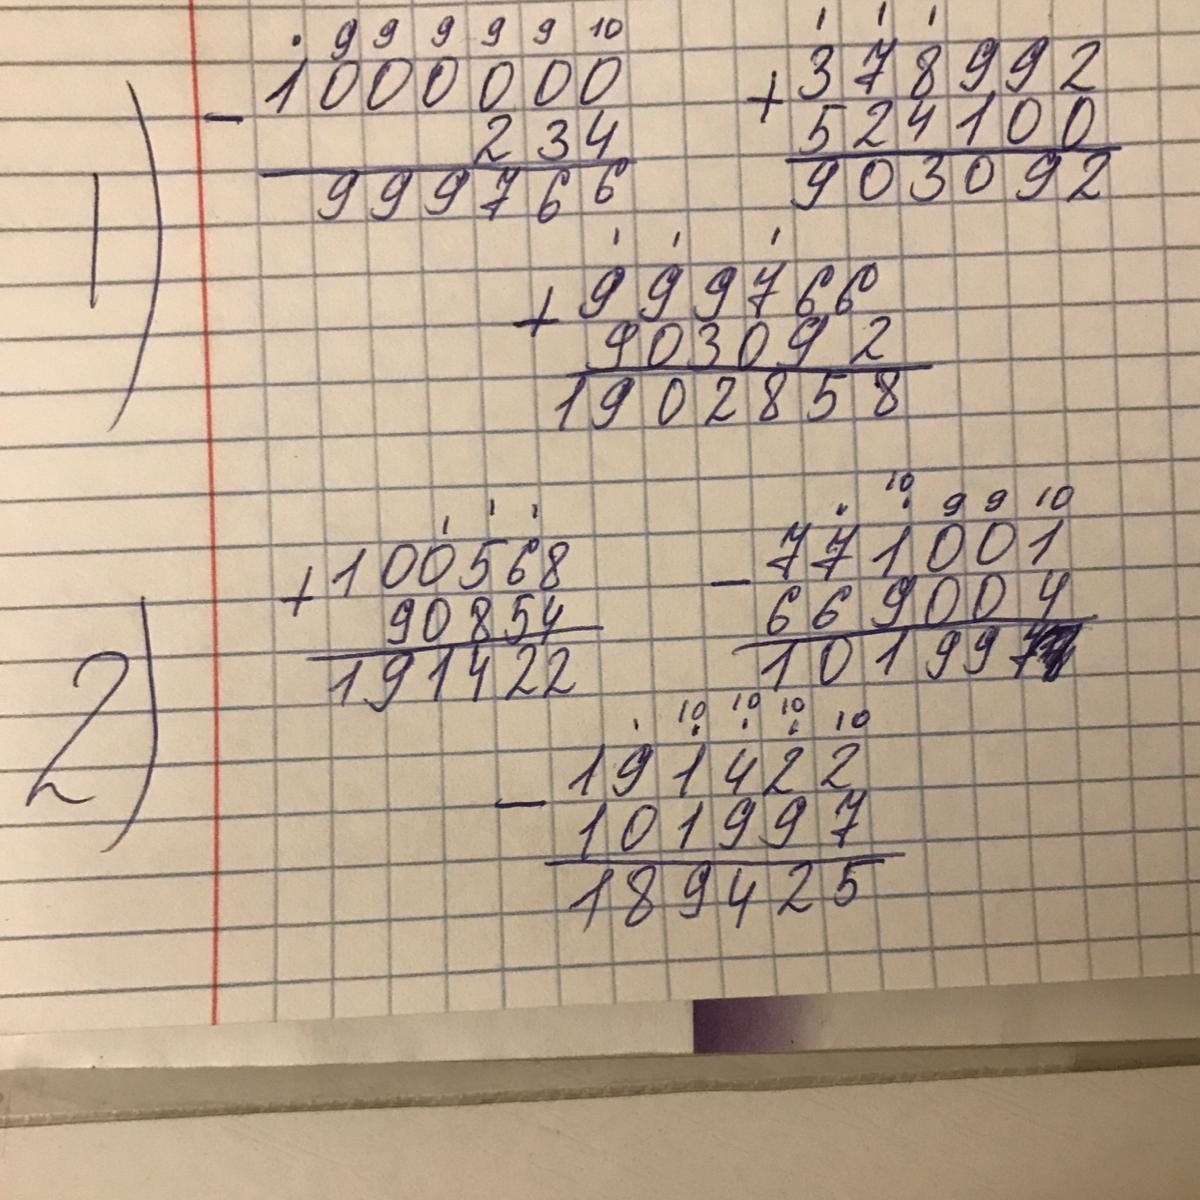 1)
. 9 9 9 9 9 10
- 1000000
234
999766
1 1 1
+ 378992
524100
903092
1 1 1
+ 999766
903092
1902858
2)
1 1 1
+ 100568
90854
191422
. 10 9 9 10
- 771001
669004
101997
. 10 10 10 10
- 191422
101997
189425